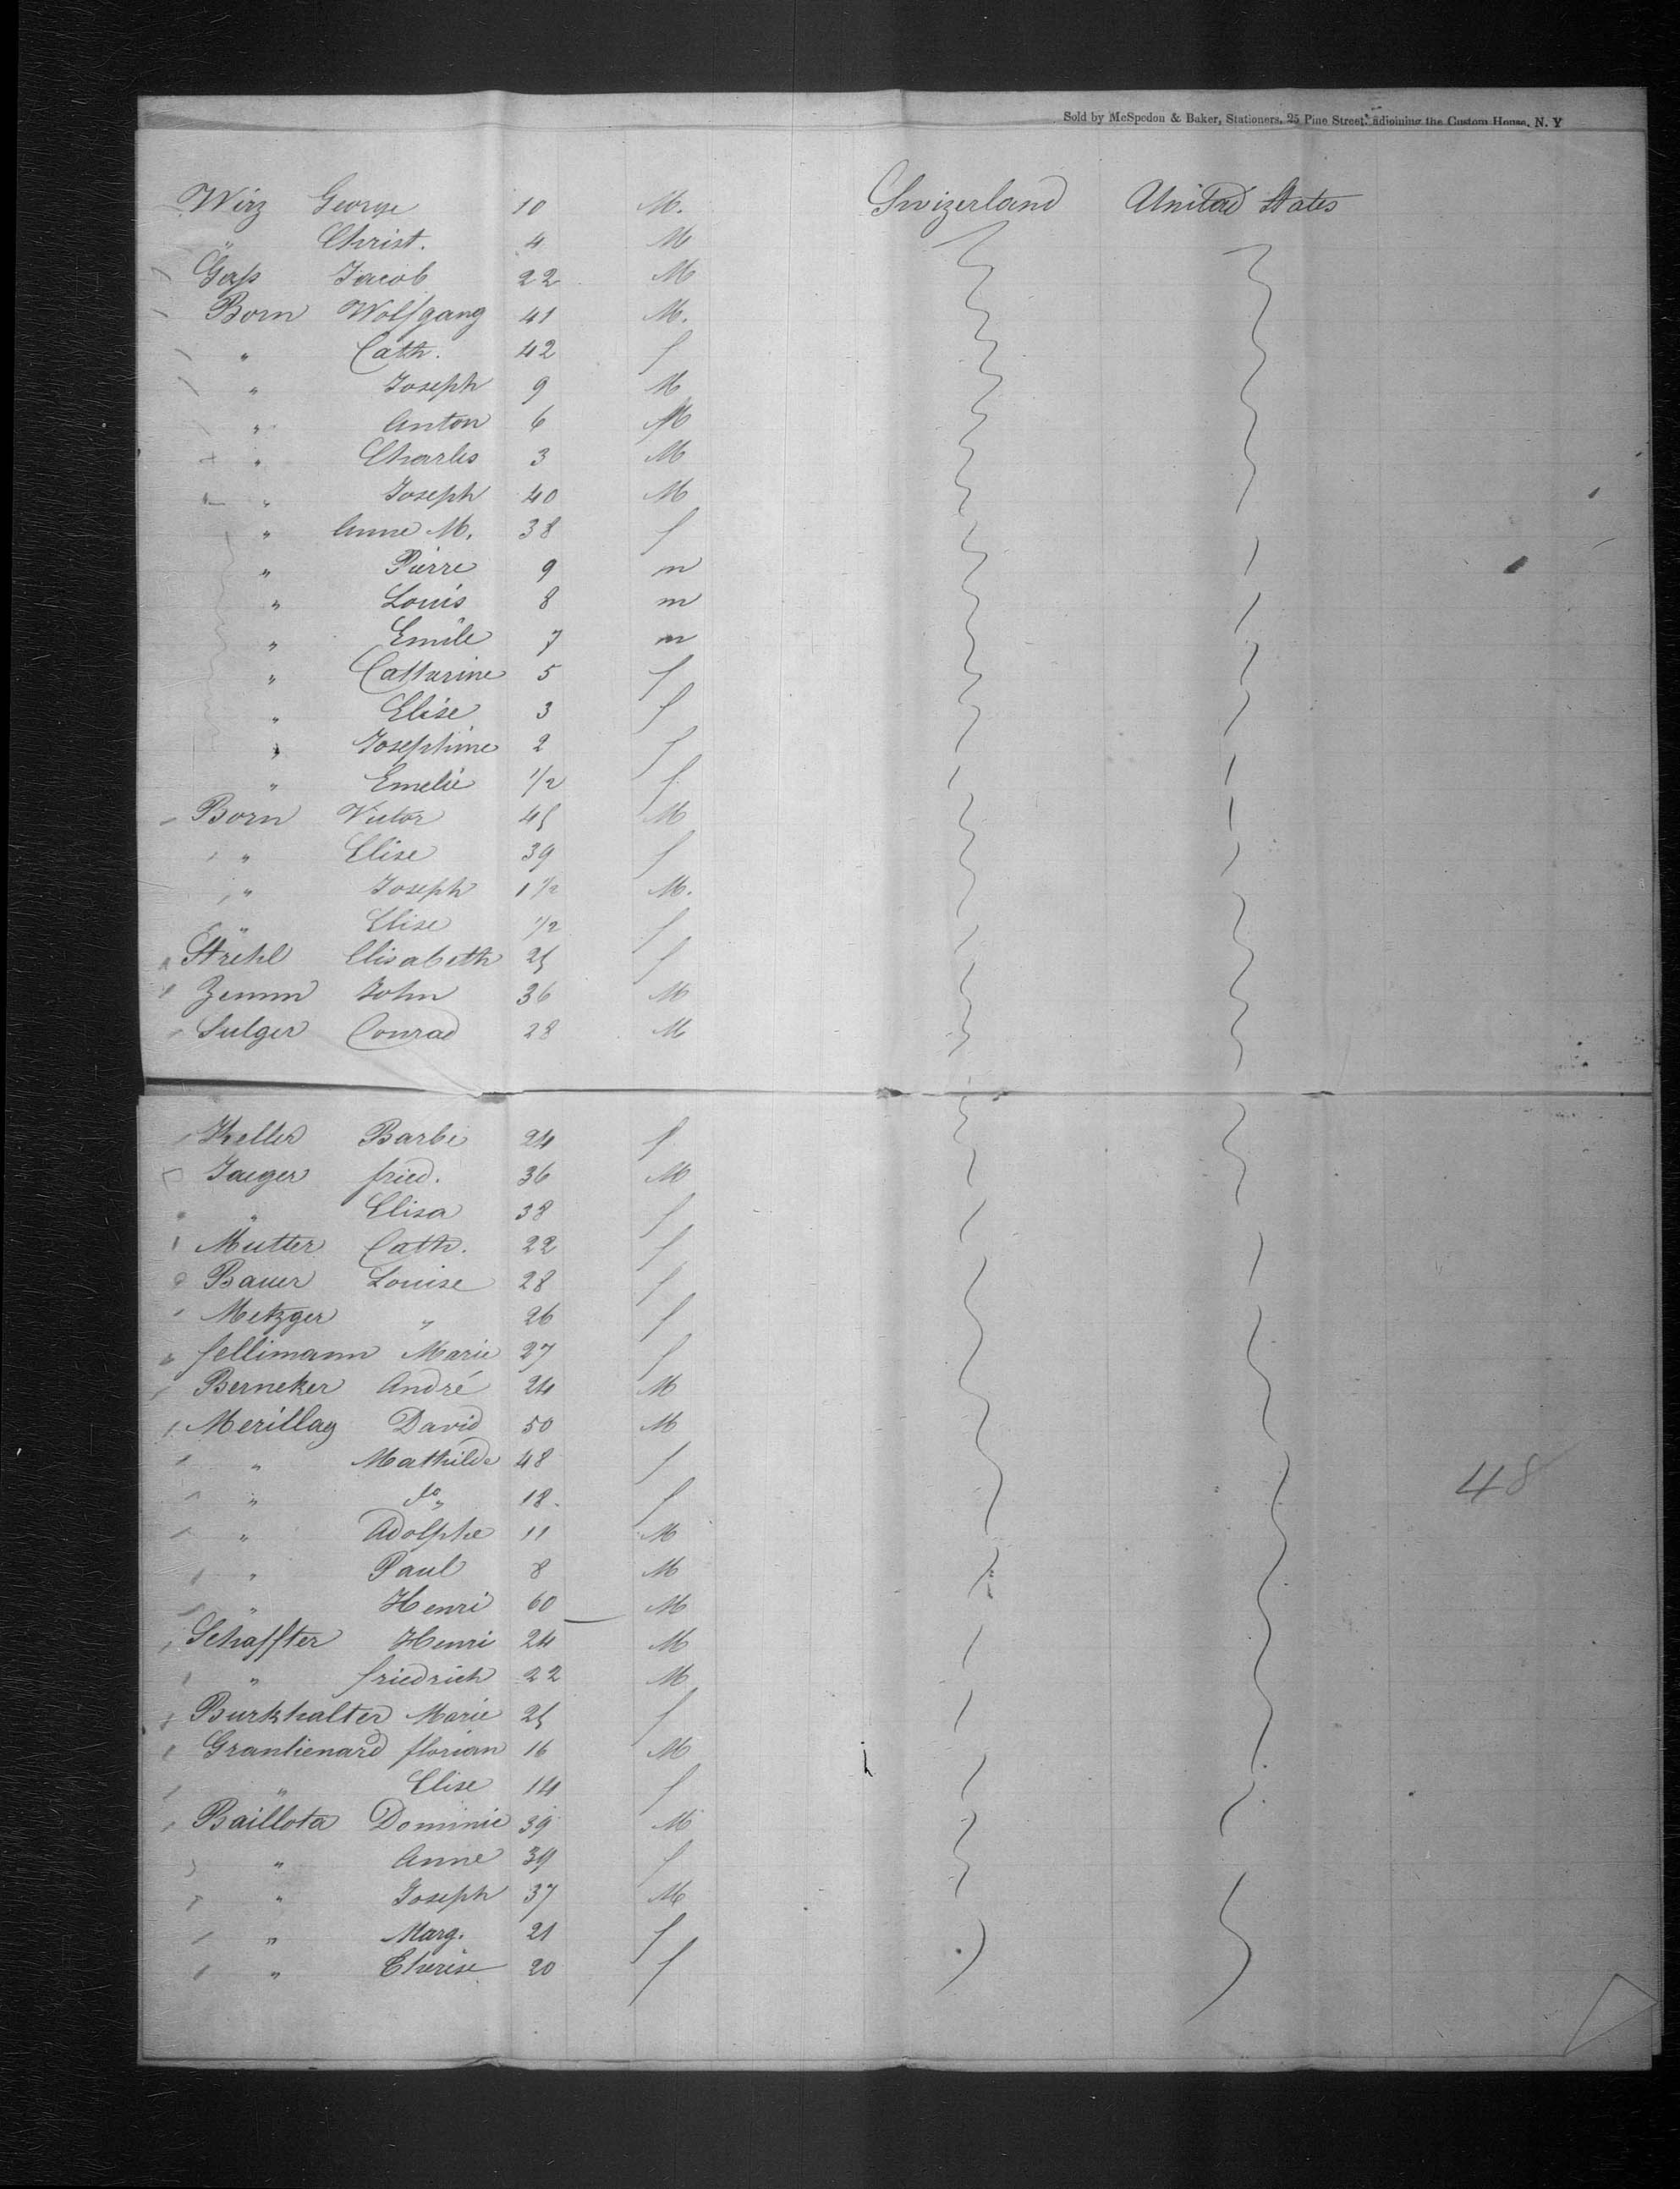 Sold by McSpedon & Baker, Stationers, 25 Pine Street, adjoining the Custom House, N. Y
Wirz George 10 M. Swizerland United States
" Christ. 4 M
Gaſs Jacob 22 M
Born Wolfgang 41 M.
" Cath. 42 f
" Joseph 9 M
" Anton 6 M
" Charles 3 M
" Joseph 40 M
" Anne M. 38 f
" Pierre 9 m
" Louis 8 m
" Emile 7 m
" Catharine 5 f
" Elise 3 f
" Josephine 2 f
" Emelie 1/2 f
Born Victor 45 M
" Elise 39 f
" Joseph 1 1/2 M.
" Elise 1/2 f
Strehl Elisabeth 25 f
Zemm John 36 M
Sulger Conrad 28 M
Keller Barbe 24 f
Jaeger fried. 36 M
" Elisa 38 f
Mutter Cath. 22 f
Bauer Louise 28 f
Metzger " 26 f
fellimann Marie 27 f
Berneker André 24 M
Merillay David 50 M
" Mathilde 48 f
" do " 18 f
" Adolphe 11 M
" Paul 8 M
" Henri 60 M
Schaffter Henri 24 M
" friedrich 22 M
Burkhalter Marie 25 f
Granlienard florian 16 M
" Elise 14 f
Baillota Dominic 39 M
" Anne 39 f
" Joseph 37 M
" Marg. 21 f
" Therise 20 f
48